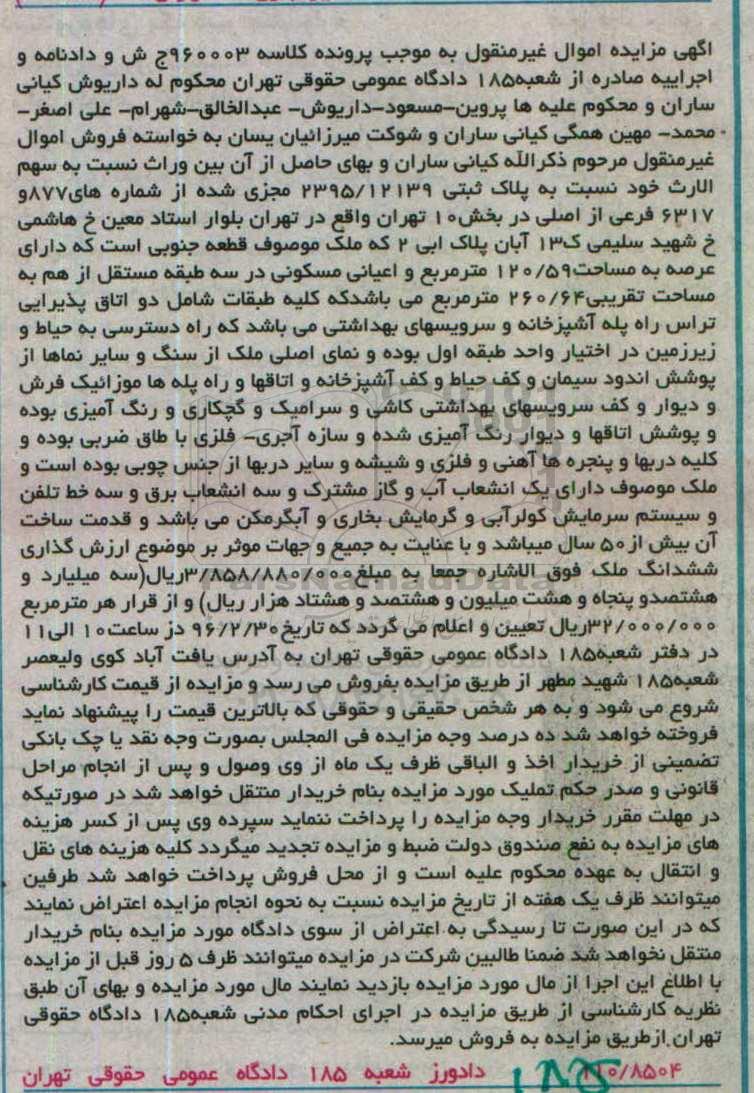 اگهی مزایده اموال غیرمنقول به موجب پرونده کلاسه ۹۶۰۰۰۳ج ش و دادنامه و
اجراییه صادره از شعبه۱۸۵ دادگاه عمومی حقوقی تهران محکوم له داریوش کیانی
ساران و محکوم علیه ها پروین-مسعود-داریوش- عبدالخالق-شهرام- علی اصغر-
محمد- مهین همگی کیانی ساران و شوکت میرزائیان یسان به خواسته فروش اموال
غیرمنقول مرحوم ذکرالله کیانی ساران و بهای حاصل از آن بین وراث نسبت به سهم
الارث خود نسبت به پلاک ثبتی ۲۳۹۵/۱۲۱۳۹ مجزی شده از شماره های۸۷۷و
۶۳۱۷ فرعی از اصلی در بخش۱۰ تهران واقع در تهران بلوار استاد معین خ هاشمی
خ شهید سلیمی ک۱۳ آبان پلاک ابی ۲ که ملک موصوف قطعه جنوبی است که دارای
عرصه به مساحت۱۲۰/۵۹ مترمربع و اعیانی مسکونی در سه طبقه مستقل از هم به
مساحت تقریبی۲۶۰/۶۴ مترمربع می باشدکه کلیه طبقات شامل دو اتاق پذیرایی
تراس راه پله آشپزخانه و سرویسهای بهداشتی می باشد که راه دسترسی به حیاط و
زیرزمین در اختیار واحد طبقه اول بوده و نمای اصلی ملک از سنگ و سایر نماها از
پوشش اندود سیمان و کف حیاط و کف آشپزخانه و اتاقها و راه پله ها موزائیک فرش
و دیوار و کف سرویسهای بهداشتی کاشی و سرامیک و گچکاری و رنگ آمیزی بوده
و پوشش اتاقها و دیوار رنگ آمیزی شده و سازه آجری- فلزی با طاق ضربی بوده و
کلیه دربها و پنجره ها آهنی و فلزی و شیشه و سایر دربها از جنس چوبی بوده است و
ملک موصوف دارای یک انشعاب آب و گاز مشترک و سه انشعاب برق و سه خط تلفن
و سیستم سرمایش کولرآبی و گرمایش بخاری و آبگرمکن می باشد و قدمت ساخت
آن بیش از۵۰ سال میباشد و با عنایت به جمیع و جهات موثر بر موضوع ارزش گذاری
ششدانگ ملک فوق الاشاره جمعا به مبلغ۳/۸۵۸/۸۸۰/۰۰۰ریال(سه میلیارد و
هشتصدو پنجاه و هشت میلیون و هشتصد و هشتاد هزار ریال) و از قرار هر مترمربع
۳۲/۰۰۰/۰۰۰ریال تعیین و اعلام می گردد که تاریخ۹۶/۲/۳۰ دز ساعت۱۰ الی۱۱
در دفتر شعبه۱۸۵ دادگاه عمومی حقوقی تهران به آدرس یافت آباد کوی ولیعصر
شعبه۱۸۵ شهید مطهر از طریق مزایده بفروش می رسد و مزایده از قیمت کارشناسی
شروع می شود و به هر شخص حقیقی و حقوقی که بالاترین قیمت را پیشنهاد نماید
فروخته خواهد شد ده درصد وجه مزایده فی المجلس بصورت وجه نقد یا چک بانکی
تضمینی از خریدار اخذ و الباقی ظرف یک ماه از وی وصول و پس از انجام مراحل
قانونی و صدر حکم تملیک مورد مزایده بنام خریدار منتقل خواهد شد در صورتیکه
در مهلت مقرر خریدار وجه مزایده را پرداخت ننماید سپرده وی پس از کسر هزینه
های مزایده به نفع صندوق دولت ضبط و مزایده تجدید میگردد کلیه هزینه های نقل
و انتقال به عهده محکوم علیه است و از محل فروش پرداخت خواهد شد طرفین
میتوانند ظرف یک هفته از تاریخ مزایده نسبت به نحوه انجام مزایده اعتراض نمایند
که در این صورت تا رسیدگی به اعتراض از سوی دادگاه مورد مزایده بنام خریدار
منتقل نخواهد شد ضمنا طالبین شرکت در مزایده میتوانند ظرف ۵ روز قبل از مزایده
با اطلاع این اجرا از مال مورد مزایده بازدید نمایند مال مورد مزایده و بهای آن طبق
نظریه کارشناسی از طریق مزایده در اجرای احکام مدنی شعبه۱۸۵ دادگاه حقوقی
تهران ازطریق مزایده به فروش میرسد.
۱۱۰/۸۵۰۴ دادورز شعبه ۱۸۵ دادگاه عمومی حقوقی تهران
۱۸۵